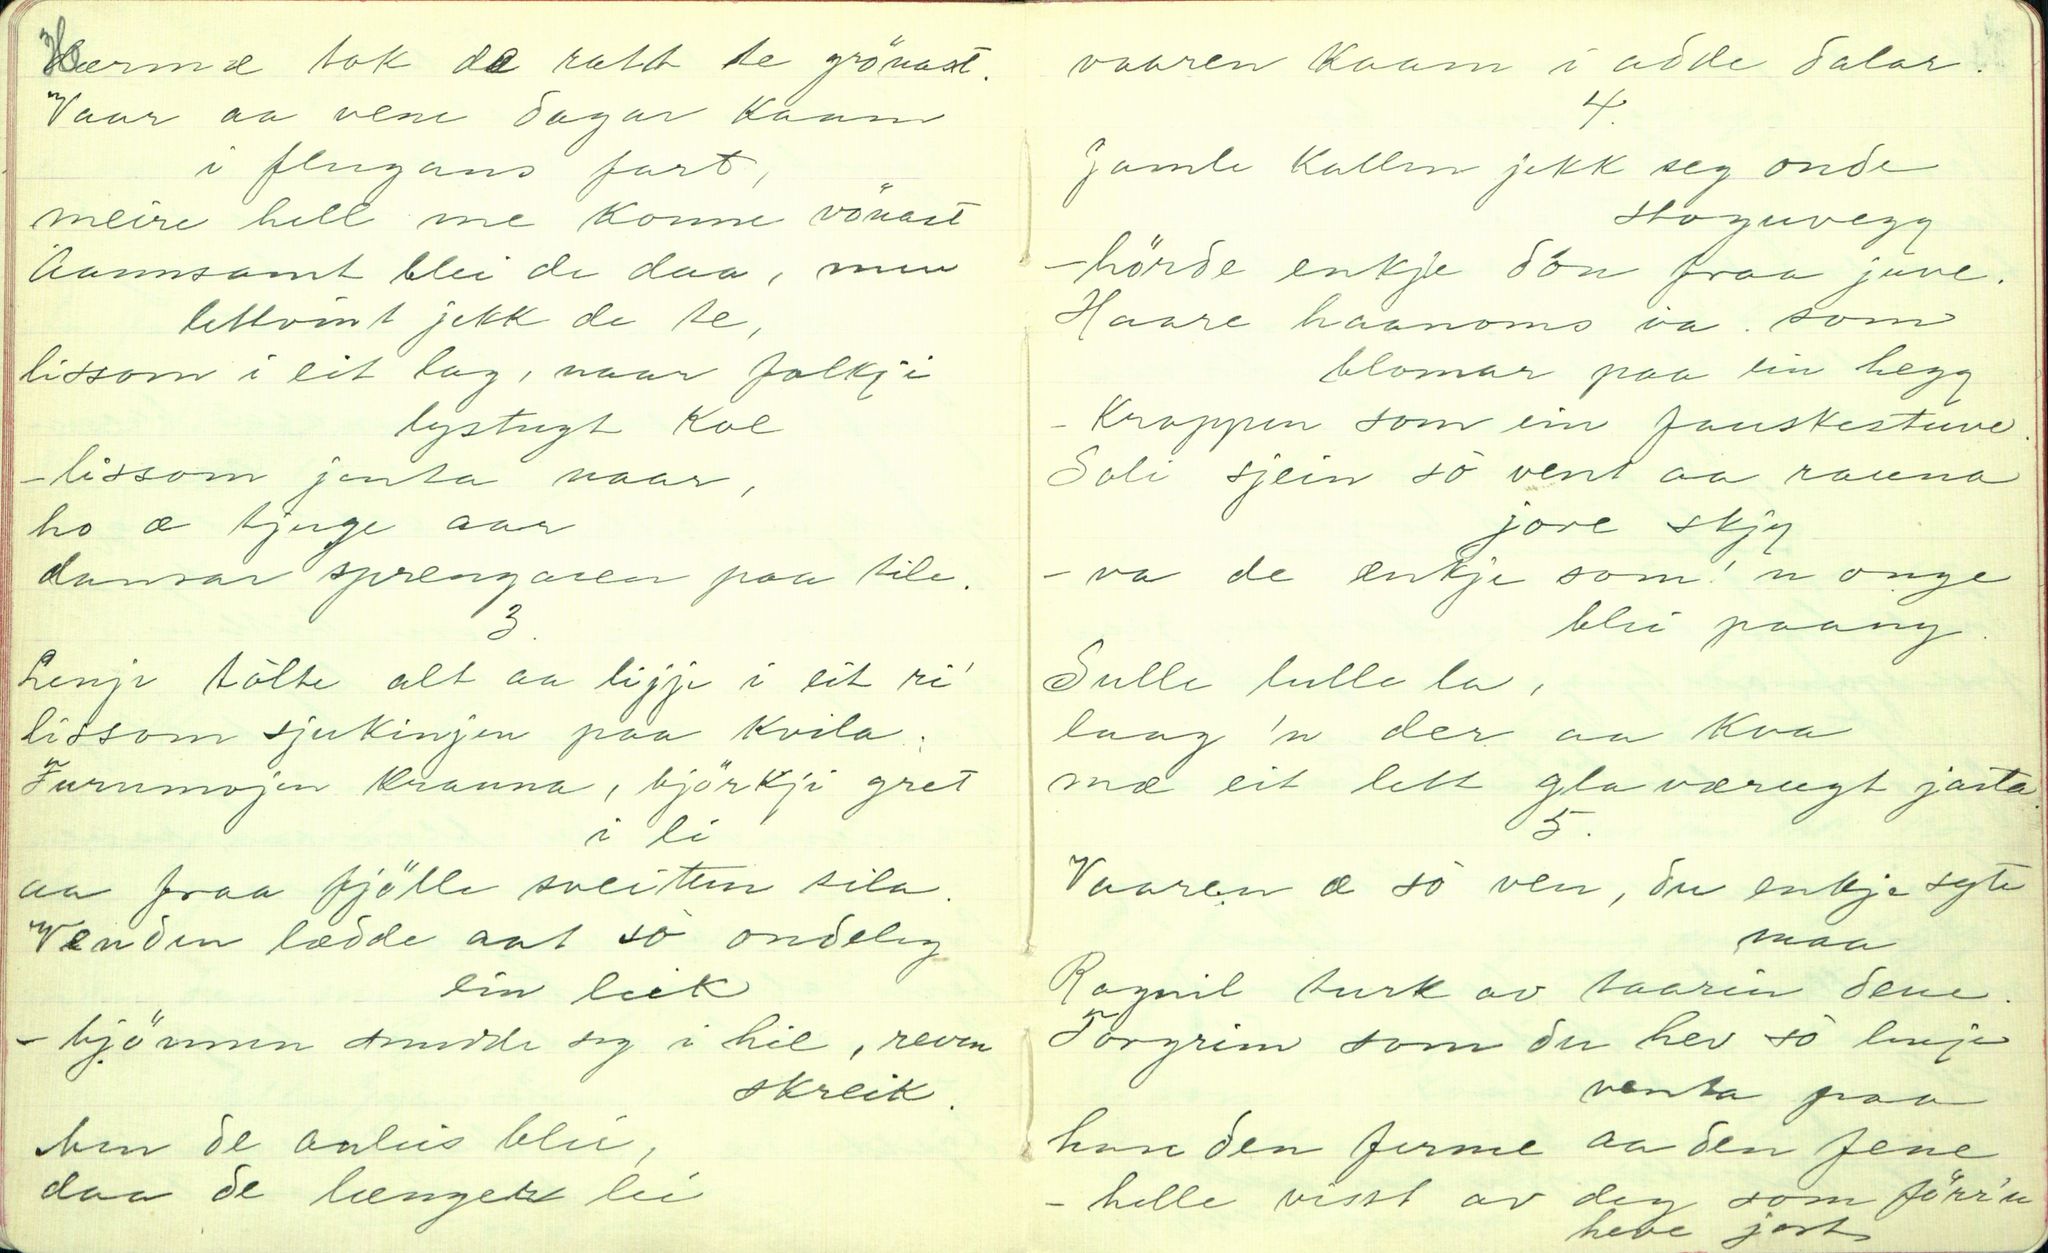 Hærmæ tok de ratt te grönast.
Vaar aa vene dagar kaam
i flugans fart,
meire hell me konne vönast
Aannsamt blei de daa, men
lettvint jekk de te,
lissom i eit lag, naar folkji
lystugt kve
- lissom jenta naar,
ho æ tjuge aar
dansar sprengaren paa tile.
3.
Lenje tolte alt aa liggje i eit ri'
lissom sjukingjen paa kvila.
Furumojen krauna, björkji gret
i li
aa fraa fjölle sveitten sila.
Venden lædde aat sö ondeleg
ein leik
- bjönnen snudde seg i hie, reven
skreik.
Men de anleis blei,
daa de længer lei
vaaren kaam i adde dalar.
4.
Gamle kallen jekk seg onde
stoguvegg
- hörde enkje dön fraa juve.
Haare haanoms va som
blomar paa ein hegg
- Kroppen som ein fauskestuve.
Soli sjein sö vent aa rauna
jore skjy
- va de enkje som! 'n onge
blei paany.
Sulle lulle la,
laag 'n der aa kva
mæ eit lett glaværugt jasta.
5.
Vaaren æ sö ven, du enkje syte
maa
Ragnil turk av taarin dene.
Torgrim som du hev sö lenje
venta paa
han den ferme aa den fene
- helle visst av deg som förr'n
heve jort